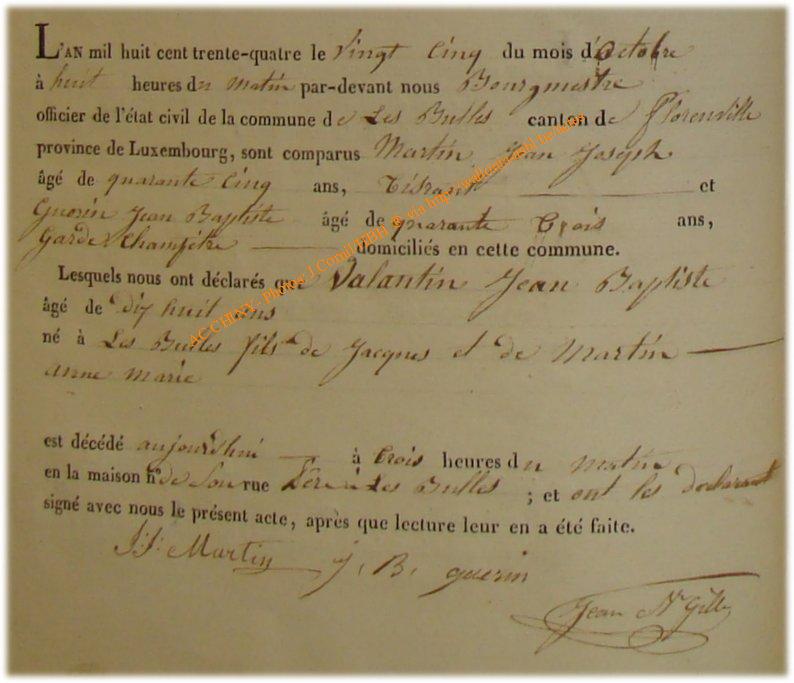 L'AN mil huit cent trente-quatre le vingt Cinq du mois d'octobre
à huit heures du matin par-devant nous Bourgmestre
officier de l'état civil de la commune de Les Bulles canton de Florenville
province de Luxembourg, sont comparus Martin Jean Joseph
âgé de quarante Cinq ans, Tisrant et
Guerin Jean Baptiste âgé de quarante Trois ans,
Garde Champêtre domiciliés en cette commune.
Lesquels nous ont déclarés que Valantin Jean Baptiste
âgé de dix huit ans
né à Les Bulles fils de Jacques et de Martin
anne marie
est décédé aujourdhui à trois heures du matin
en la maison n° de Son rue Père à Les Bulles ; et ont les declarant
signé avec nous le présent acte, après que lecture leur en a été faite.
J. J. Martin J. B. guerin
Jean Nr Gille
ACCHINY- Photos J Cornil EBH & via http://